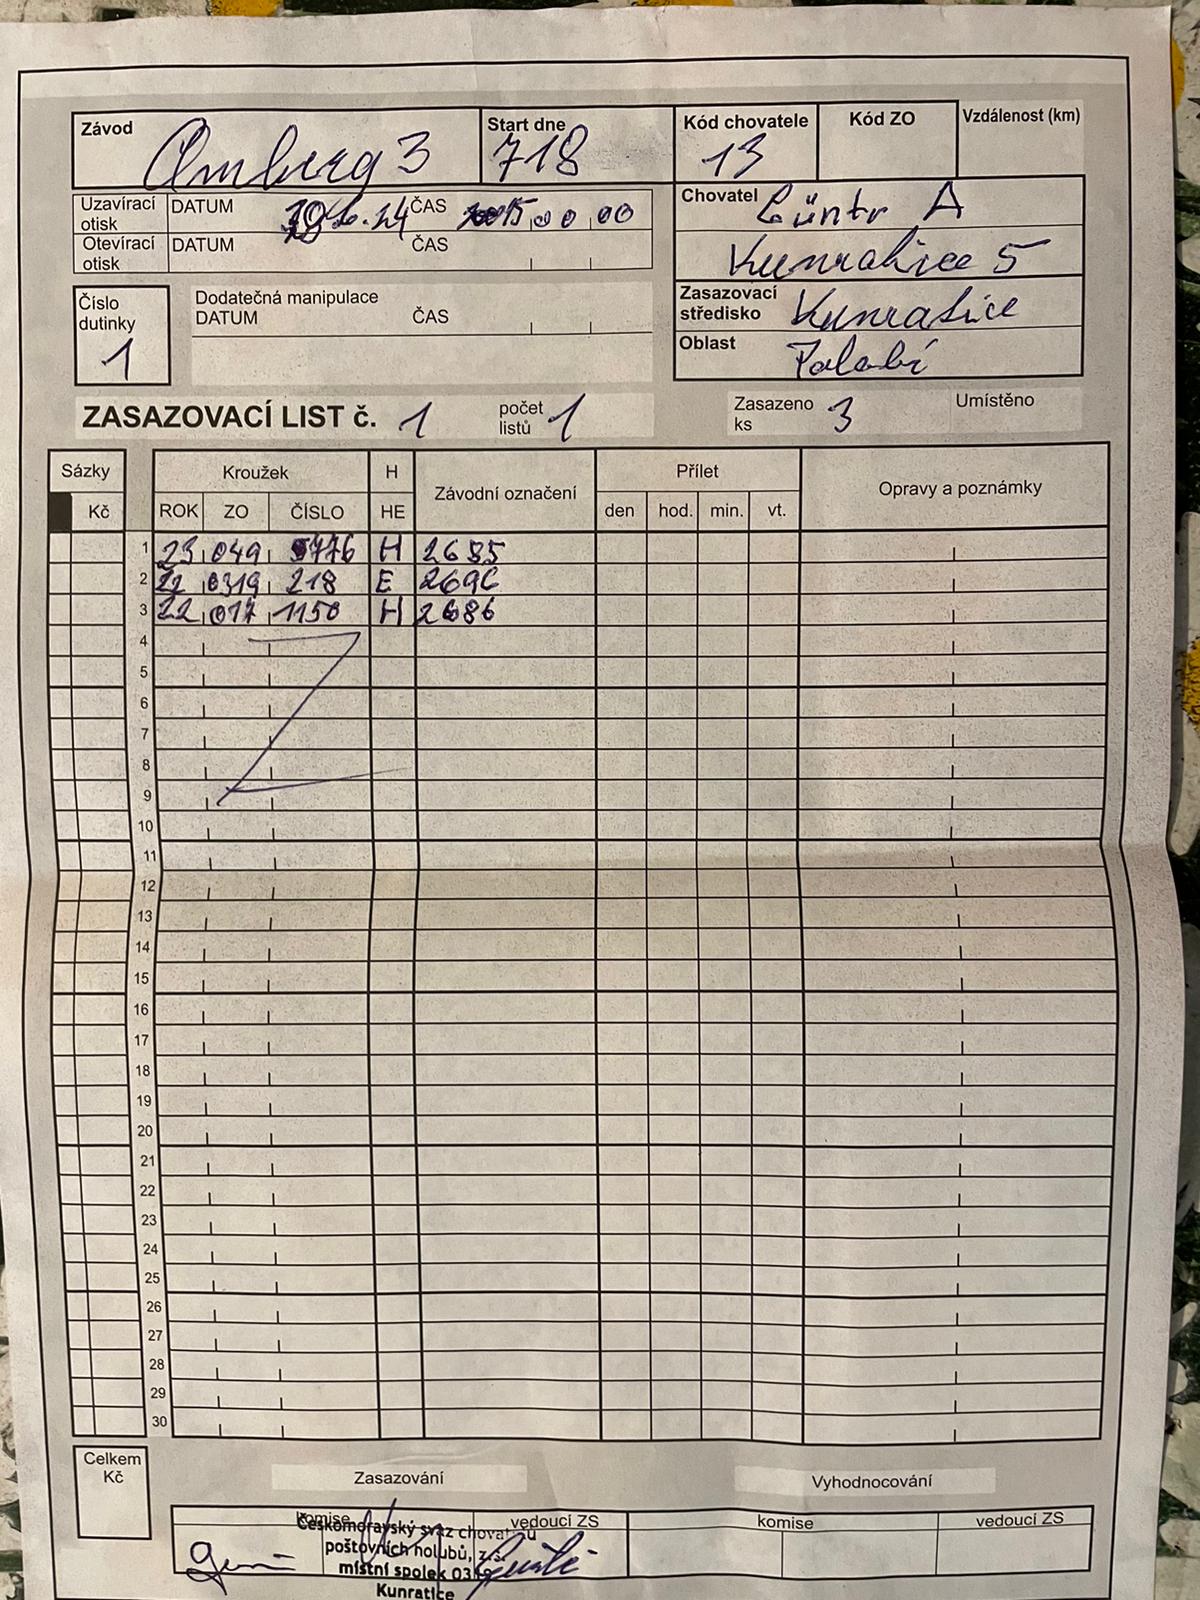 Závod Amberg 3 Start dne 718 Kód chovatele 13 Kód ZO Vzdálenost (km)
Uzavírací otisk DATUM ČAS 00 00
Otevírací otisk DATUM ČAS
Chovatel Güntr A
Kunratice 5
Číslo dutinky 1
Dodatečná manipulace
DATUM ČAS
Zasazovací středisko Kunratice
Oblast Polabí
ZASAZOVACÍ LIST č. 1 počet listů 1 Zasazeno ks 3 Umístěno
Sázky Kroužek H Závodní označení Přílet Opravy a poznámky
Kč ROK ZO ČÍSLO HE den hod. min. vt.
1 23 049 5776 H 2685
2 22 0319 218 E 2696
3 22 017 1150 H 2686
4
5
6
7
8
9
10
11
12
13
14
15
16
17
18
19
20
21
22
23
24
25
26
27
28
29
30
Celkem Kč
Zasazování Vyhodnocování
komise vedoucí ZS komise vedoucí ZS
Českomoravský svaz chovatelů
poštovních holubů, z.s.
místní spolek 0319
Kunratice